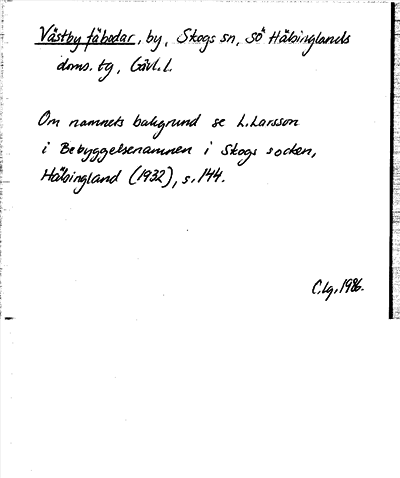 Västby fäbodar, by, Skogs sn, Sö Hälsinglands
doms. tg, Gävl. l.
Om namnets bakgrund se L. Larsson
i Bebyggelsenamnen i Skogs socken,
Hälsingland (1932), s. 144.
C. Lg. 1986.